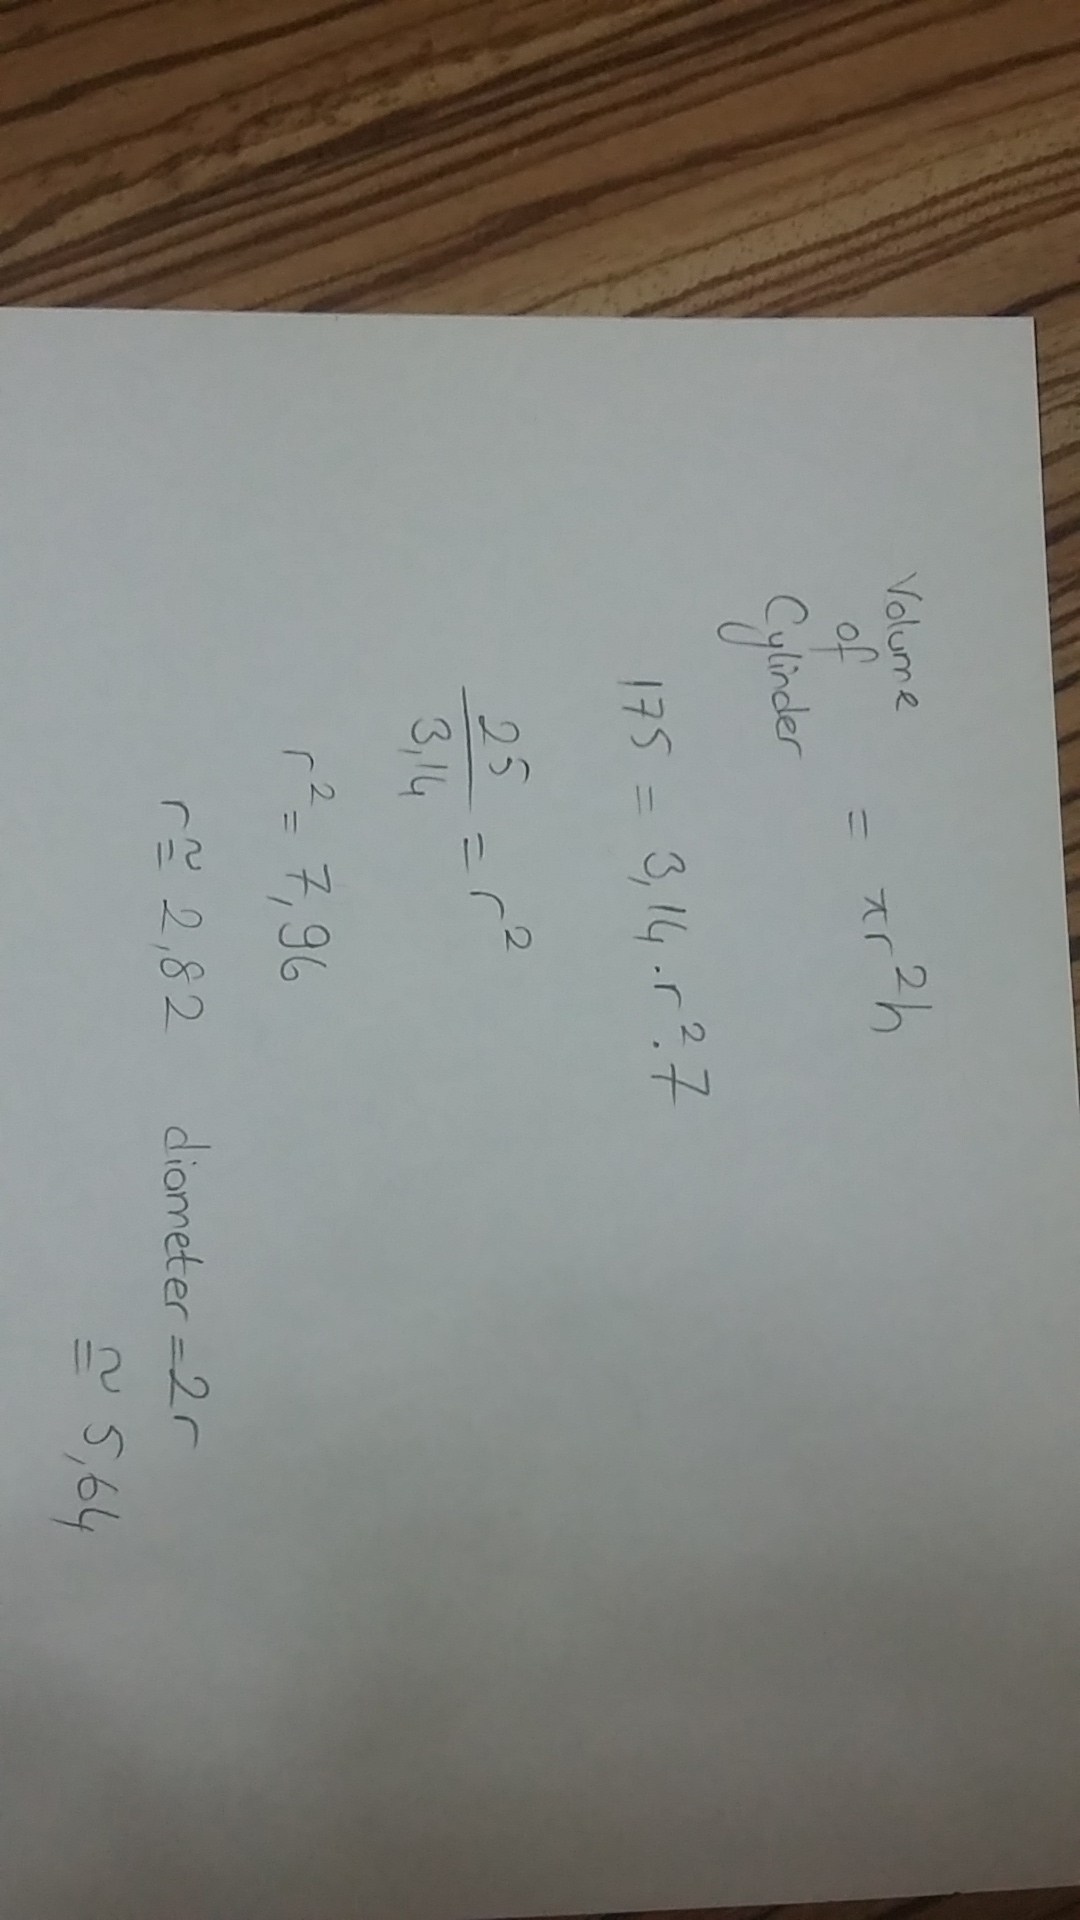 Volume
of
Cylinder
= πr²h
175 = 3,14 . r² . 7
25
3,14
= r²
r² = 7,96
r ≅ 2,82 diameter = 2r
≅ 5,64